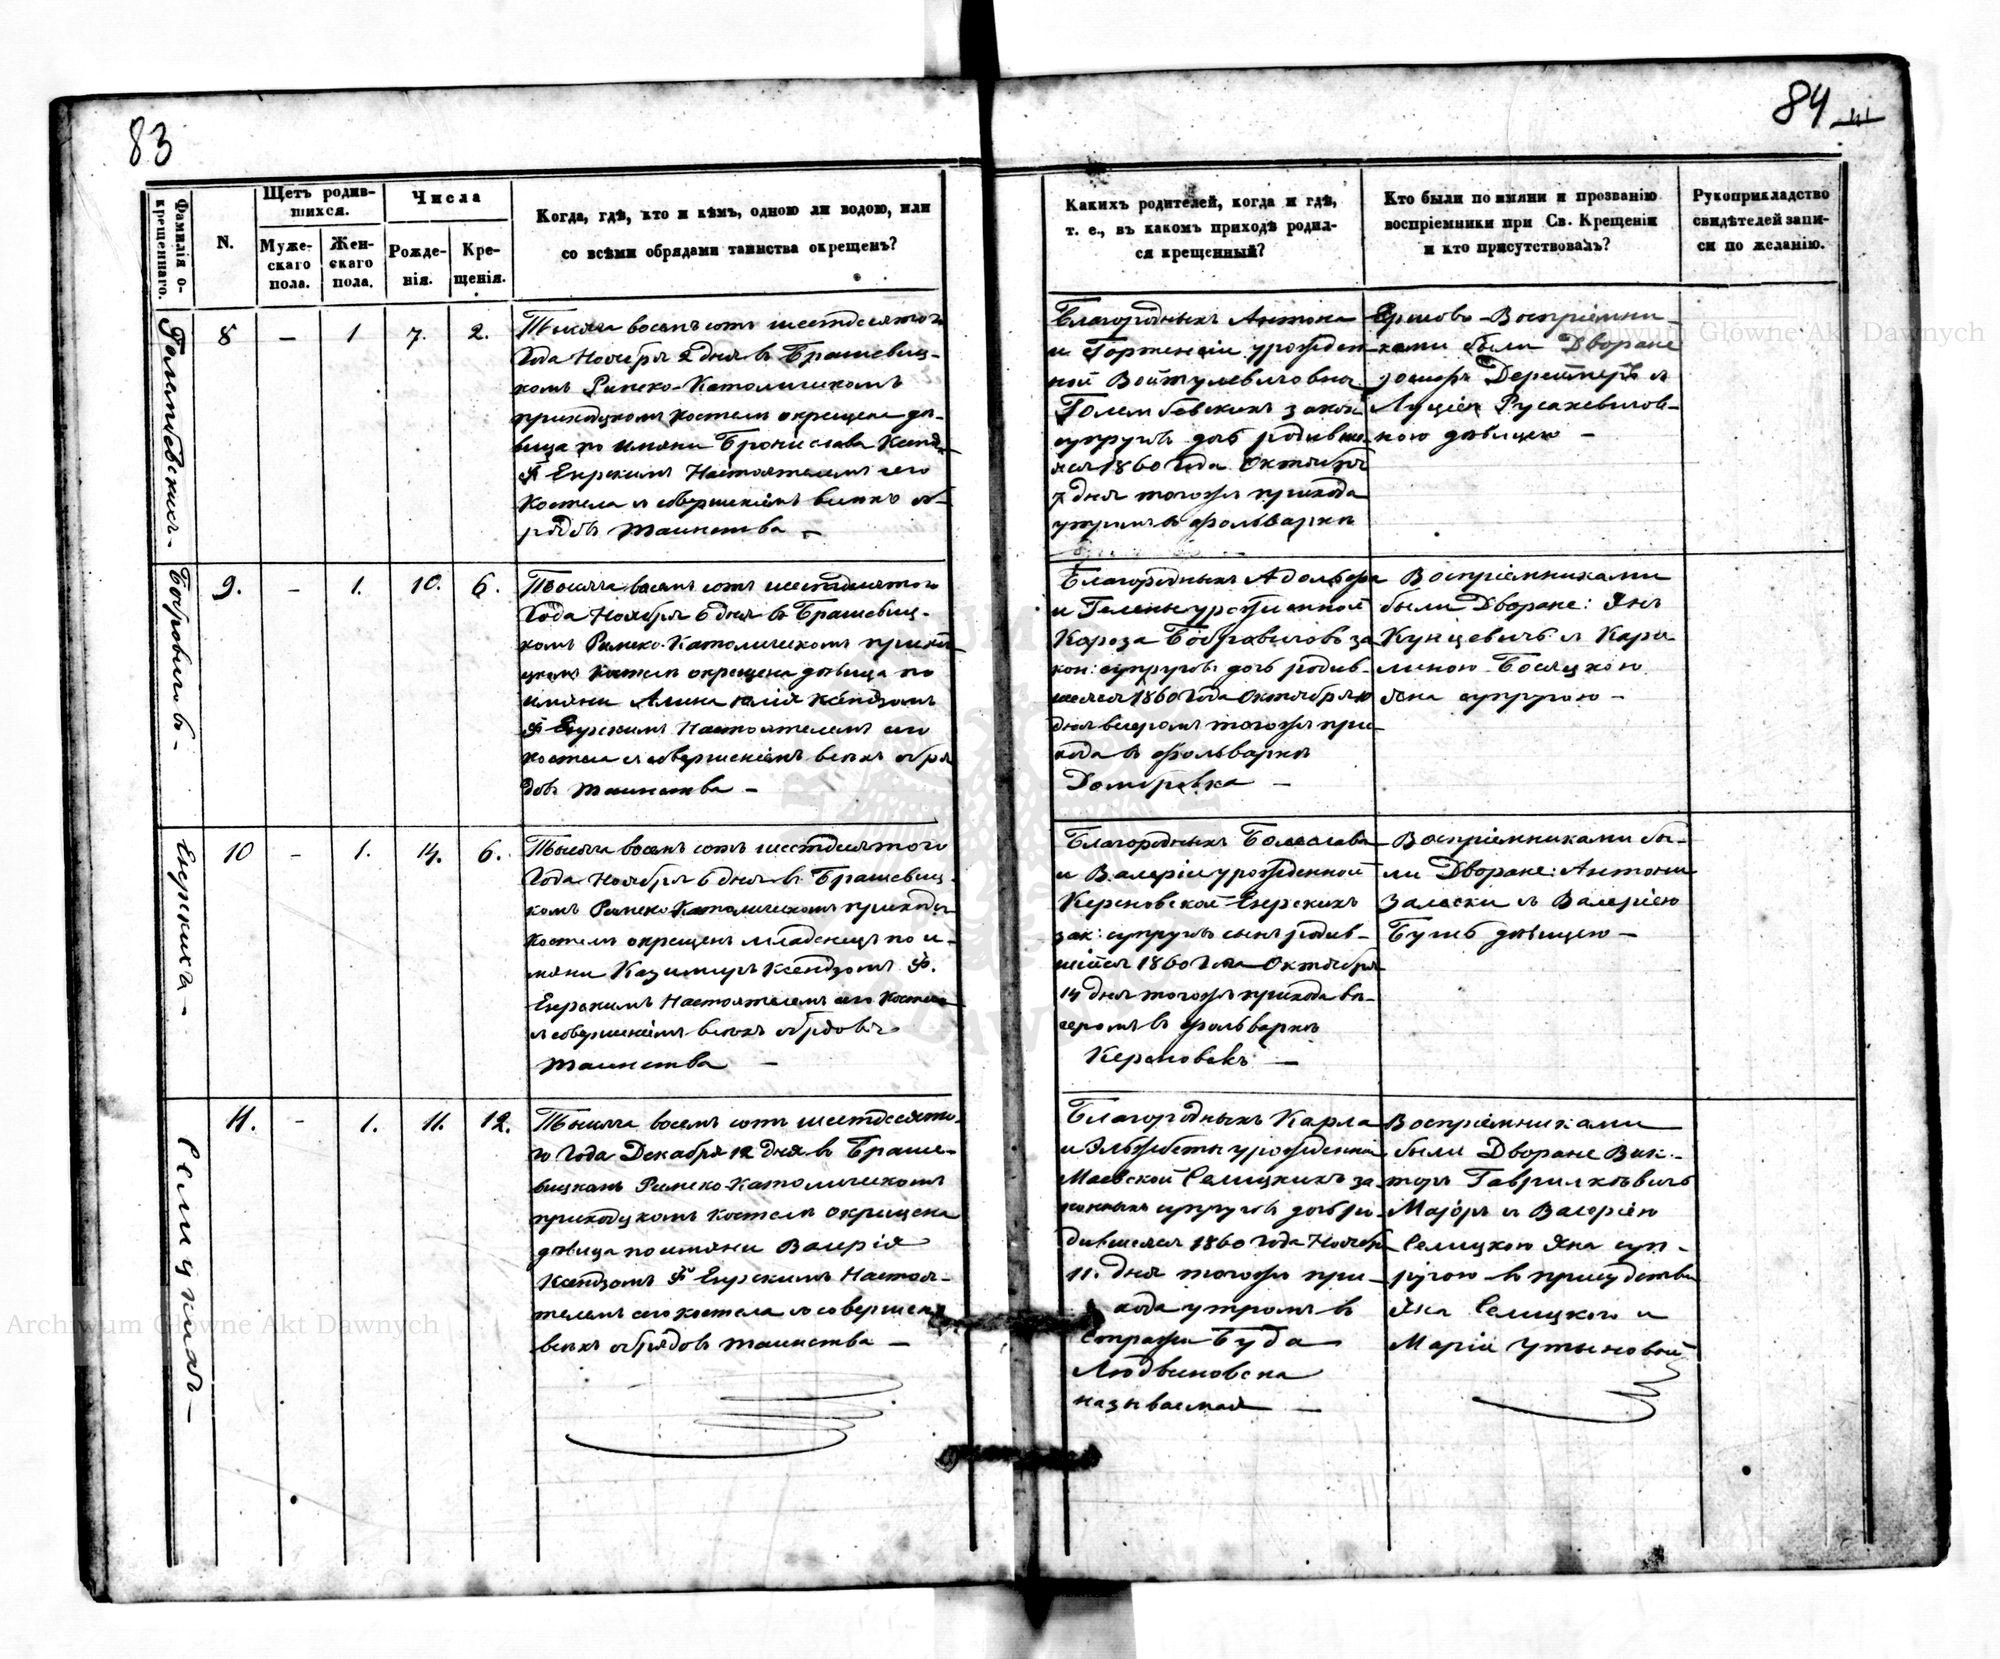 83
84
Фамилія о-
крещеннаго.
N.
Щетъ родив-
шихся.
Муже-
скаго
пола.
Жен-
скаго
пола.
Числа
Рожде-
нія.
Кре-
щенія.
Когда, гдѣ, кто и кѣмъ, одною ли водою, или
со всѣми обрядами таинства окрещенъ?
Какихъ родителей, когда и гдѣ,
т. е., въ какомъ приходѣ родил-
ся крещенный?
Кто были по имяни и прозванію
воспріемники при Св. Крещеніи
и кто присутствовалъ?
Рукоприкладство
свидѣтелей запи-
си по желанію.
8 – 1 7. 2.
Тысяча восемъ сотъ шестдесятого
Года Ноября 2 дня въ Брашевиц-
комъ Римско-Католическомъ
приходскомъ костелѣ окрещена дѣ-
вица по имяни Бронислава
Ф Енрскимъ Настоятелемъ сего
Костела съ совершеніемъ всѣхъ об-
рядовъ таинства –
Благородныхъ Антона
и Гортензіи урожден
ной
закон
супруговъ дочь родивша
яся 1860 года Октября
7 дня тогожъ прихода
утромъ въ фольварки
Воспріемни-
ками были Дворане
Іосифъ и
Луція Русакевичов-
ною дѣвицею –
Бобровичовъ –
9. – 1. 10. 6.
Тысяча восемъ сотъ шестдесятого
Года Ноября 6 дня въ Брашевиц-
комъ Римско-Католическомъ прихо
костелѣ окрещена дѣвица по
имяни Алина Юлія Ксендзомъ
Ф Енрскимъ Настоятелемъ сего
костела съ совершеніемъ всѣхъ обря
довъ таинства –
Благородныхъ Адольфа
и Гелены урожденной
Короза Бобровичовъ за
кон: супруговъ дочь родив-
шаяся 1860 Года Октября 10
дня вечеромъ тогожъ при
хода въ фольварки
Домбровка –
Воспріемниками
были Дворане: Янъ
Кунцевичъ и Каро
линою
Яна супругою –
Енрскихъ –
10 – 1. 14. 6.
Тысяча восемъ сотъ шестдесятого
Года Ноября 6 дня въ Брашевиц-
комъ Римско Католическомъ приходск
костелѣ окрещенъ младенецъ по и-
мяни Казимиръ Ксендзомъ Ф.
Енрскимъ Настоятелемъ сего Костела
съ совершеніемъ всѣхъ обрядовъ
таинства –
Благородныхъ Болеслава
и Валеріи урожденной
Керсновской Енрскихъ
зак: супруговъ сынъ родив-
шійся 1860 Года Октября
14 дня тогожъ прихода ве-
черомъ въ фольварки
–
Воспріемниками бы-
ли Дворане: Антони
Залески и Валеріею
дѣвицею –
Селицкихъ –
11. – 1. 11. 12.
Тысяча восемъ сотъ шестдесято-
го Года Декабря 12 дня въ Браше-
вицкомъ Римско-Католическомъ
приходскомъ костелѣ окрещена
дѣвица по имяни Валерія
Ксендзомъ Ф Енрскимъ Настоя-
телемъ сего костела съ соверш
всѣхъ обрядовъ таинства –
Благородныхъ Карла
и Эльжбеты урожденной
Маевской Селицкихъ за
конныхъ супруговъ дочь ро-
дившаяся 1860 Года Ноября
11. дня тогожъ при-
хода утромъ въ
Стражи Буда
Людвиновска
называемая –
Воспріемниками
были Дворане Вик-
торъ
Маіоръ и Валеріею
Селицкою Яна суп-
ругою въ присудствіи
Яна Селицкого и
Маріи
Archiwum Główne Akt Dawnych
Archiwum Główne Akt Dawnych